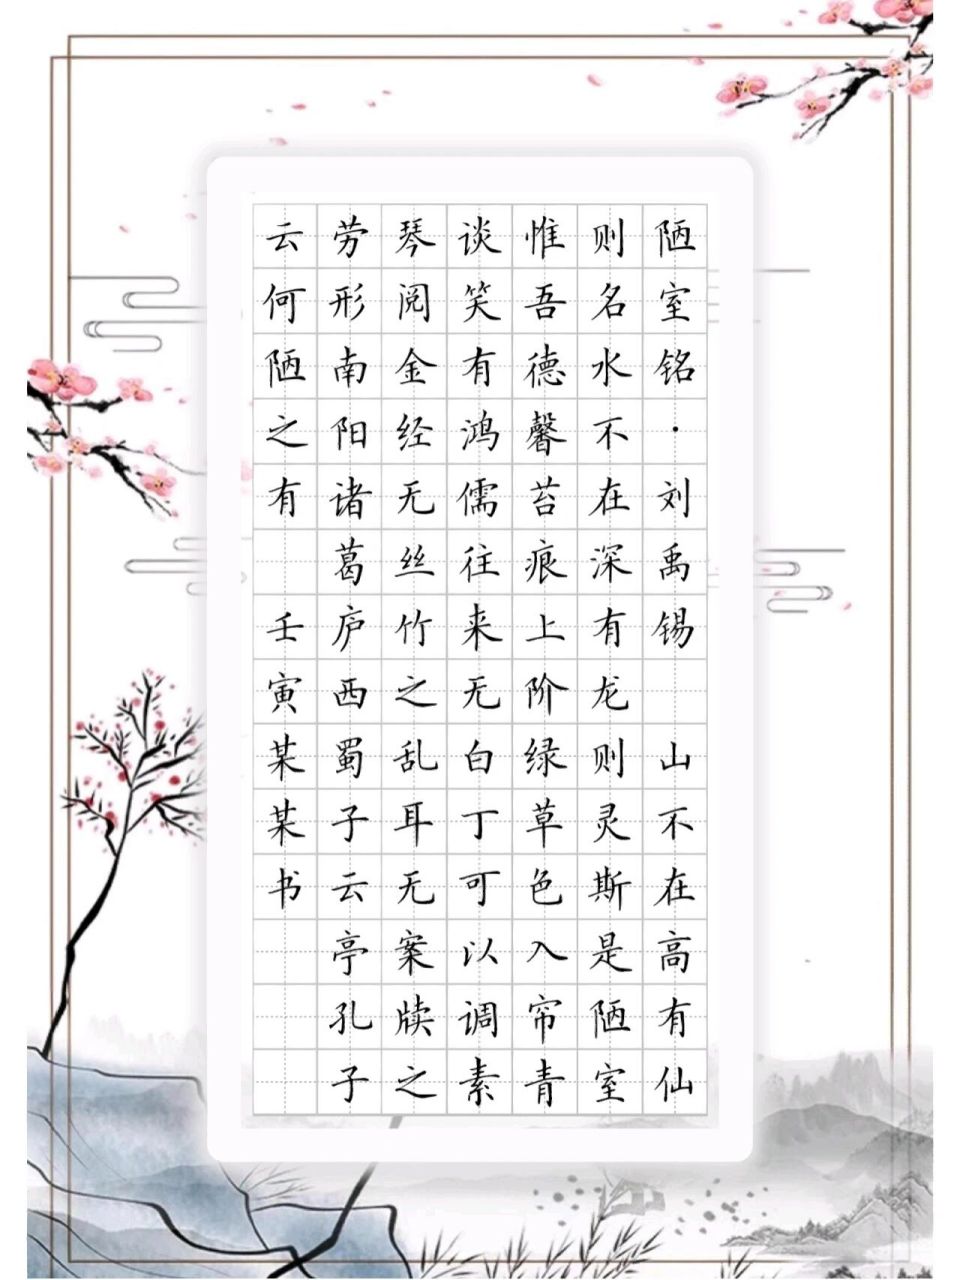 陋室铭·刘禹锡 山不在高有仙
则名水不在深有龙则灵斯是陋室
惟吾德馨苔痕上阶绿草色入帘青
谈笑有鸿儒往来无白丁可以调素
琴阅金经无丝竹之乱耳无案牍之
劳形南阳诸葛庐西蜀子云亭孔子
云何陋之有 壬寅某某书